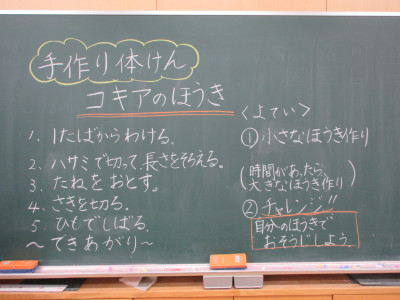 手作り体けん
コキアのほうき
1. 1たばからわける。
2. ハサミで切って長さをそろえる。
3. たねをおとす。
4. さきを切る。
5. ひもでしばる。
〜できあがり〜
<よてい>
①小さなほうき作り
(時間があったら、
大きなほうき作り)
②チャレンジ!!
自分のほうきで
おそうじしよう。